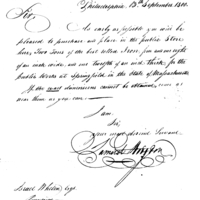 Philadelphia 15th September 1800.
Sir,
As early as possible you will be
pleased to purchase and place in the public Store
here, Two Tons of the best rolled Iron, four one eighth of
an inch wide, and one twelfth of an inch thick, for the
public Works at Springfield in the State of Massachusetts.
If the exact dimensions cannot be obtained, come as
near them as you can.
I am,
Sir,
your most obedient Servant
Samuel Hodgdon
Israel Whelen Esqr.